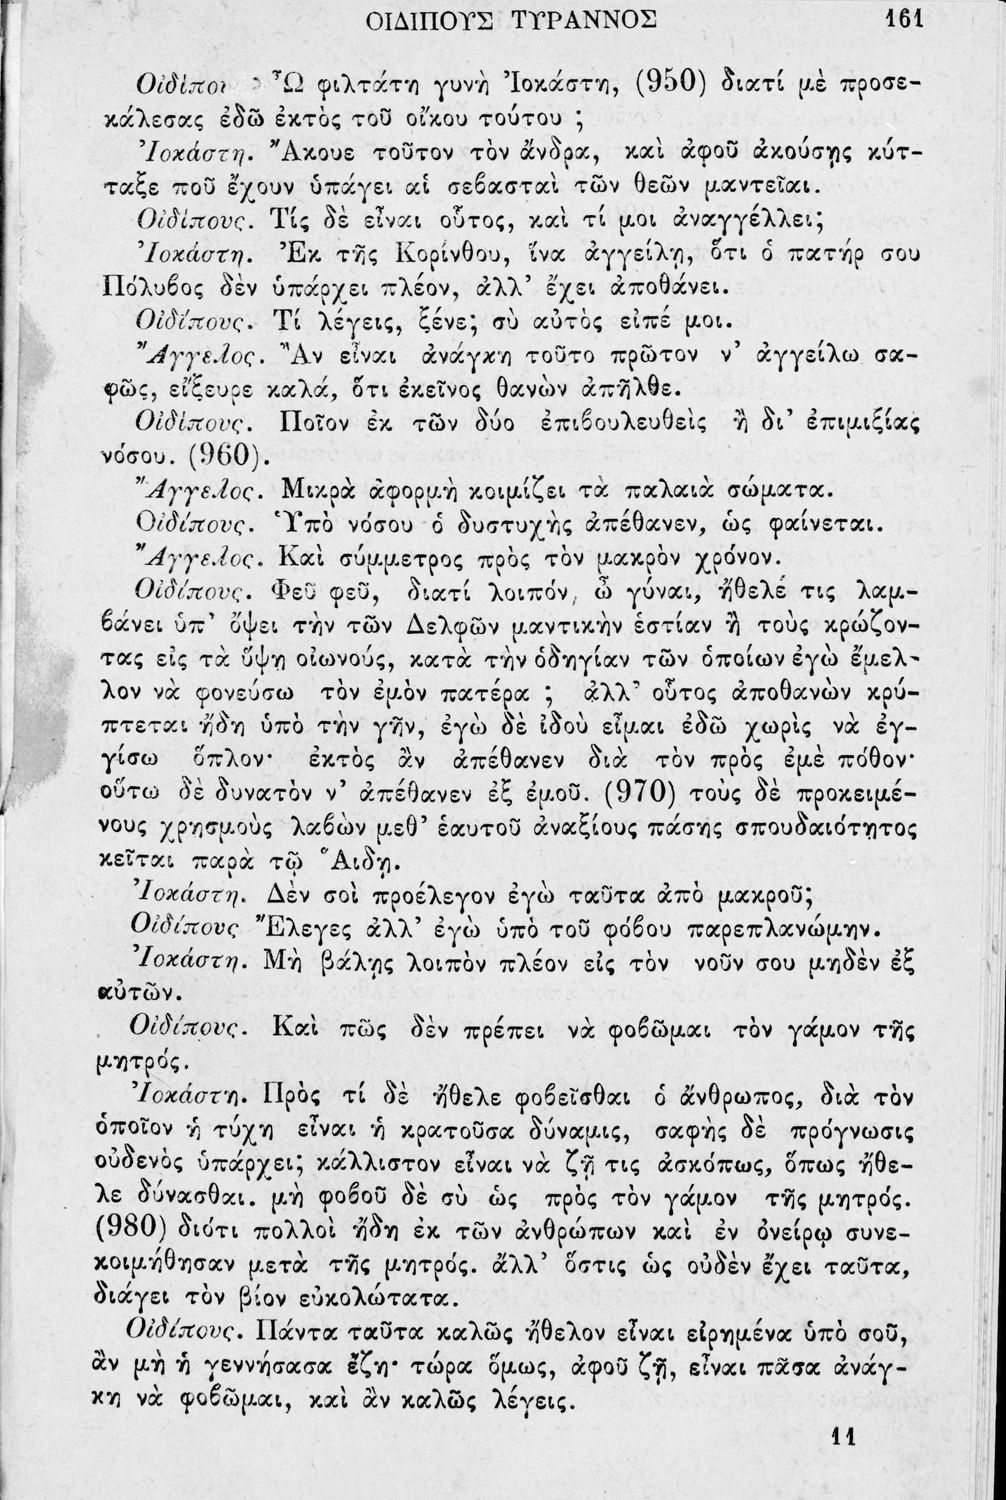 ΟΙΔΙΠΟΥΣ ΤΥΡΑΝΝΟΣ 161
Οἰδίπου Ὦ φιλτάτη γυνὴ Ἰοκάστη, (950) διατί μὲ προσε-
κάλεσας ἐδῶ ἐκτὸς τοῦ οἴκου τούτου ;
Ἰοκάστη. Ἄκουε τοῦτον τὸν ἄνδρα, καὶ ἀφοῦ ἀκούσῃς κύτ-
ταξε ποῦ ἔχουν ὑπάγει αἱ σεβασταὶ τῶν θεῶν μαντεῖαι.
Οἰδίπους. Τίς δὲ εἶναι οὗτος, καὶ τί μοι ἀναγγέλλει;
Ἰοκάστη. Ἐκ τῆς Κορίνθου, ἵνα ἀγγείλῃ, ὅτι ὁ πατήρ σου
Πόλυβος δὲν ὑπάρχει πλέον, ἀλλ’ ἔχει ἀποθάνει.
Οἰδίπους. Τί λέγεις, ξένε; σὺ αὐτὸς εἰπέ μοι.
Ἄγγελος. Ἂν εἶναι ἀνάγκη τοῦτο πρῶτον ν’ ἀγγείλω σα-
φῶς, εἴξευρε καλά, ὅτι ἐκεῖνος θανὼν ἀπῆλθε.
Οἰδίπους. Ποῖον ἐκ τῶν δύο ἐπιβουλευθεὶς ἢ δι’ ἐπιμιξίας
νόσου. (960).
Ἄγγελος. Μικρὰ ἀφορμὴ κοιμίζει τὰ παλαιὰ σώματα.
Οἰδίπους. Ὑπὸ νόσου ὁ δυστυχὴς ἀπέθανεν, ὡς φαίνεται.
Ἄγγελος. Καὶ σύμμετρος πρὸς τὸν μακρὸν χρόνον.
Οἰδίπους. Φεῦ φεῦ, διατί λοιπόν, ὦ γύναι, ἤθελέ τις λαμ-
βάνει ὑπ’ ὄψει τὴν τῶν Δελφῶν μαντικὴν ἑστίαν ἢ τοὺς κρώζον-
τας εἰς τὰ ὕψη οἰωνούς, κατὰ τὴν ὁδηγίαν τῶν ὁποίων ἐγὼ ἔμελ-
λον νὰ φονεύσω τὸν ἐμὸν πατέρα ; ἀλλ’ οὗτος ἀποθανὼν κρύ-
πτεται ἤδη ὑπὸ τὴν γῆν, ἐγὼ δὲ ἰδοὺ εἶμαι ἐδῶ χωρὶς νὰ ἐγ-
γίσω ὅπλον· ἐκτὸς ἂν ἀπέθανεν διὰ τὸν πρὸς ἐμὲ πόθον·
οὕτω δὲ δυνατὸν ν’ ἀπέθανεν ἐξ ἐμοῦ. (970) τοὺς δὲ προκειμέ-
νους χρησμοὺς λαβὼν μεθ’ ἑαυτοῦ ἀναξίους πάσης σπουδαιότητος
κεῖται παρὰ τῷ Ἅιδῃ.
Ἰοκάστη. Δὲν σοὶ προέλεγον ἐγὼ ταῦτα ἀπὸ μακροῦ;
Οἰδίπους Ἔλεγες ἀλλ’ ἐγὼ ὑπὸ τοῦ φόβου παρεπλανώμην.
Ἰοκάστη. Μὴ βάλῃς λοιπὸν πλέον εἰς τὸν νοῦν σου μηδὲν ἐξ
αὐτῶν.
Οἰδίπους. Καὶ πῶς δὲν πρέπει νὰ φοβῶμαι τὸν γάμον τῆς
μητρός.
Ἰοκάστη. Πρὸς τί δὲ ἤθελε φοβεῖσθαι ὁ ἄνθρωπος, διὰ τὸν
ὁποῖον ἡ τύχη εἶναι ἡ κρατοῦσα δύναμις, σαφὴς δὲ πρόγνωσις
οὐδενὸς ὑπάρχει; κάλλιστον εἶναι νὰ ζῇ τις ἀσκόπως, ὅπως ἤθε-
λε δύνασθαι. μὴ φοβοῦ δὲ σὺ ὡς πρὸς τὸν γάμον τῆς μητρός.
(980) διότι πολλοὶ ἤδη ἐκ τῶν ἀνθρώπων καὶ ἐν ὀνείρῳ συνε-
κοιμήθησαν μετὰ τῆς μητρός. ἄλλ’ ὅστις ὡς οὐδὲν ἔχει ταῦτα,
διάγει τὸν βίον εὐκολώτατα.
Οἰδίπους. Πάντα ταῦτα καλῶς ἤθελον εἶναι εἰρημένα ὑπὸ σοῦ,
ἂν μὴ ἡ γεννήσασα ἔζη· τώρα ὅμως, ἀφοῦ ζῇ, εἶναι πᾶσα ἀνάγ-
κη νὰ φοβῶμαι, καὶ ἂν καλῶς λέγεις.
11